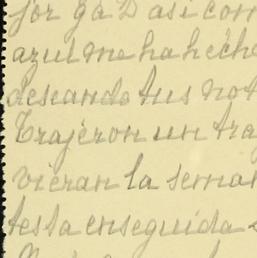 asi con
azul me ha hech
deseando tus not
Trajeron un tra
vieran la seman
testa enseguida